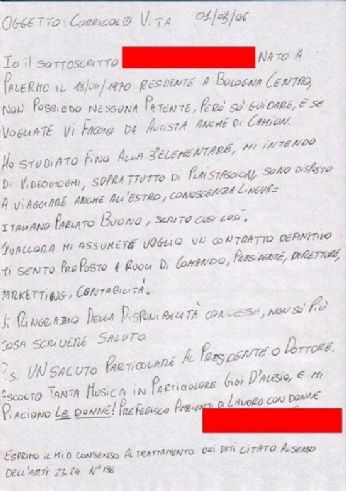 OGGETTO: CORRICOLO VITA 01/08/06
IO IL SOTTOSCRITTO NATO A
PALERMO IL 18/04/1970 RESIDENTE A BOLOGNA CENTRO,
NON POSSIEDO NESSUNA PATENTE, PERÒ SO' GUIDARE, E SE
VOGLIATE VI FACCIO DA AUTISTA ANCHE DI CAMION.
HO STUDIATO FINO ALLA 3°ELEMENTARE, MI INTENDO
DI VIDEOGIOGHI, SOPRATTUTTO DI PLAISTASCION, SONO DISPOSTO
A VIAGGIARE ANCHE ALL'ESTRO, CONOSCENZA LINGUA=
ITALIANO PARLATO BUONO, SCRITO COSI COSÍ.
QUALLORA MI ASSUMETE VOGLIO UN CONTRATTO DEFINITIVO
MI SENTO PREPOSTO A RUOLI DI COMANDO, PRESIDENTE, DIRETTORE,
MARKETTING, CONTABILITÀ.
VI RINGRAZIO DELLA DISPONIBILITÀ CONCESSA, NON SÒ PIÙ
COSA SCRIVERE SALUTO.
P.S. UN SALUTO PARTICOLARE AL PRESIDENTE O DOTTORE.
ASCOLTO TANTA MUSICA IN PARTICOLORE GIGI D'ALESIO, E MI
PIACIONO LE DONNE! PREFERISCO AMBIENTI DI LAVORO CON DONNE
ESPRIMO IL MIO CONSENSO AL TRATTAMENTO DEI DATI CITATO AL SENSO
DELL'ARTI 23.24 N°196